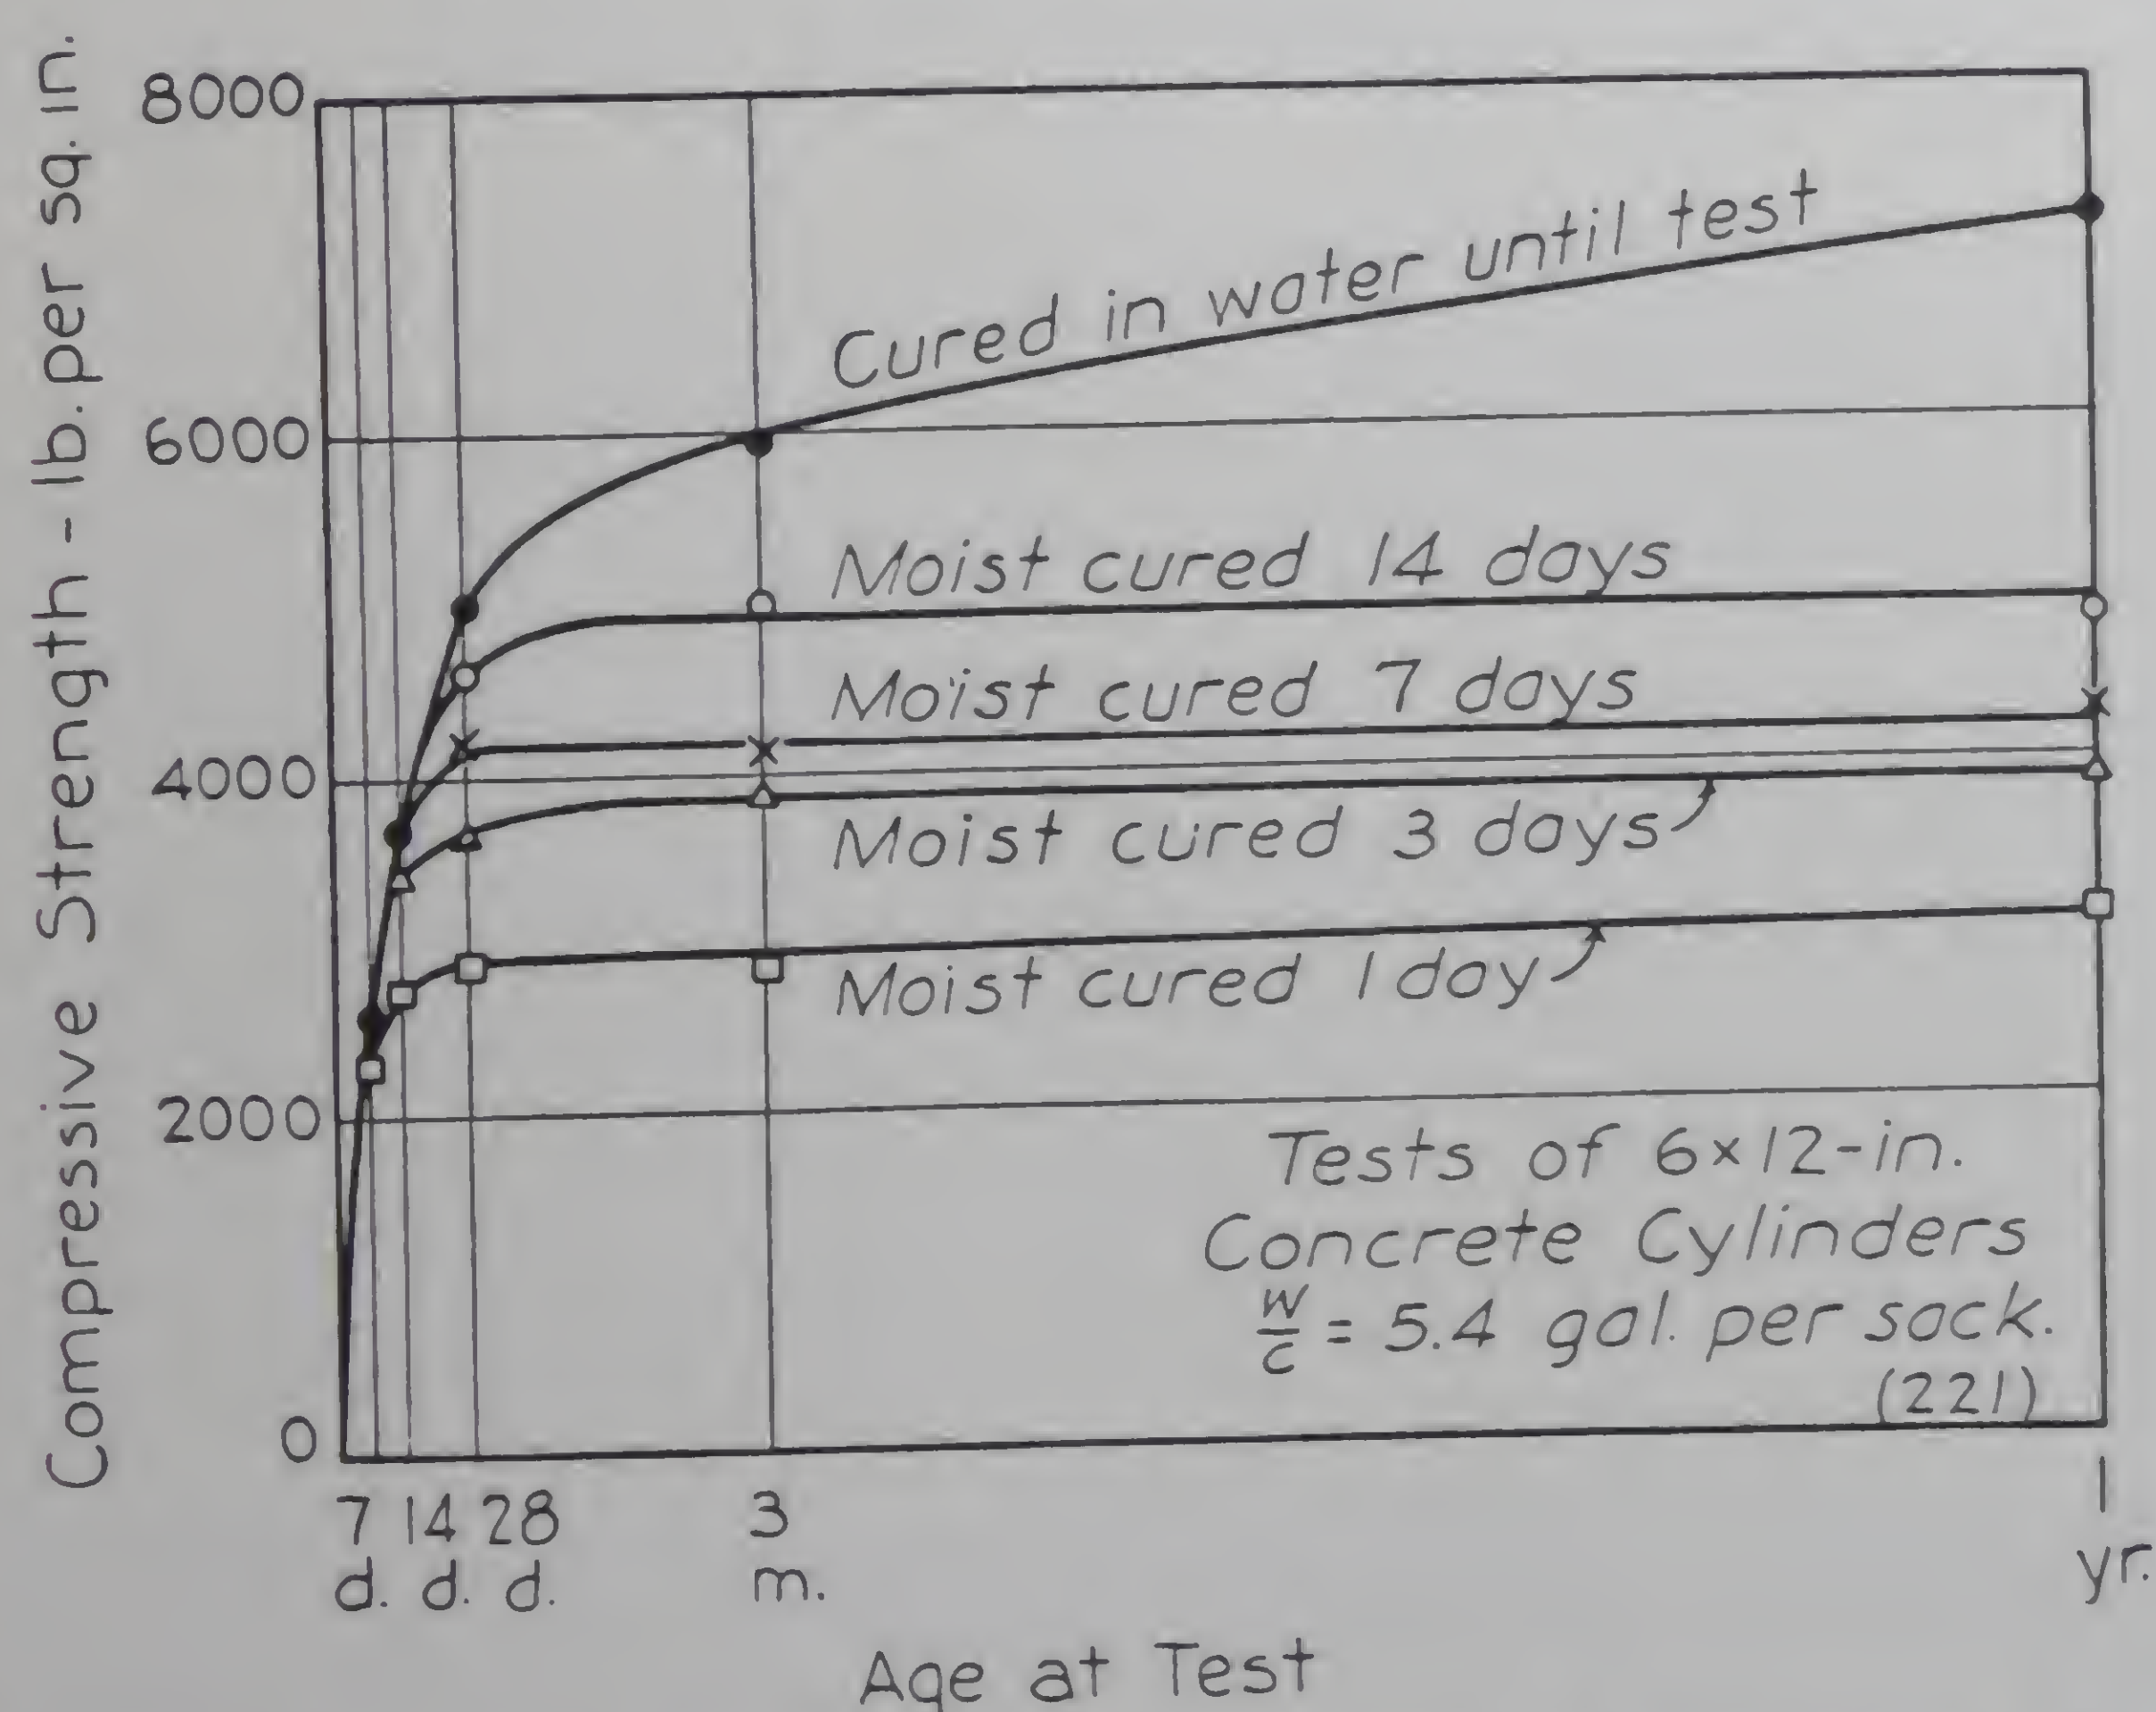 Compressive Strength - lb. per sq. in.
8000
6000
4000
2000
0
Cured in water until test
Moist cured 14 days
Moist cured 7 days
Moist cured 3 days
Moist cured 1 day
Tests of 6x12-in.
Concrete Cylinders
w/c = 5.4 gal. per sack.
(221)
7 14 28 3 1
d. d. d. m. yr.
Age at Test